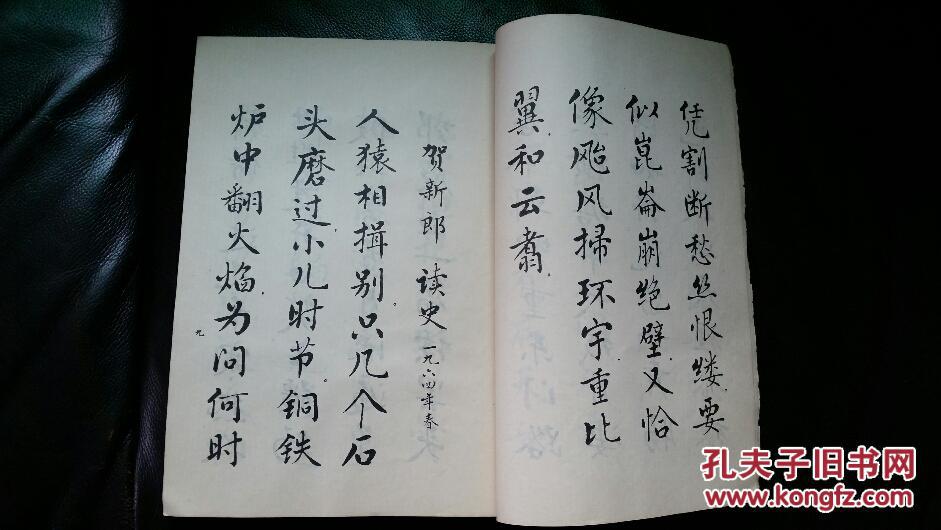 凭割断愁丝恨缕.要
似崑崙崩绝壁.又恰
像飐风扫环宇.重比
翼.和云翥.
贺新郎 读史 一九六四年春
人猿相揖别。只几个石
头磨过小儿时节。铜铁
炉中翻火焰.为问何时
九
孔夫子旧书网
www.kongfz.com